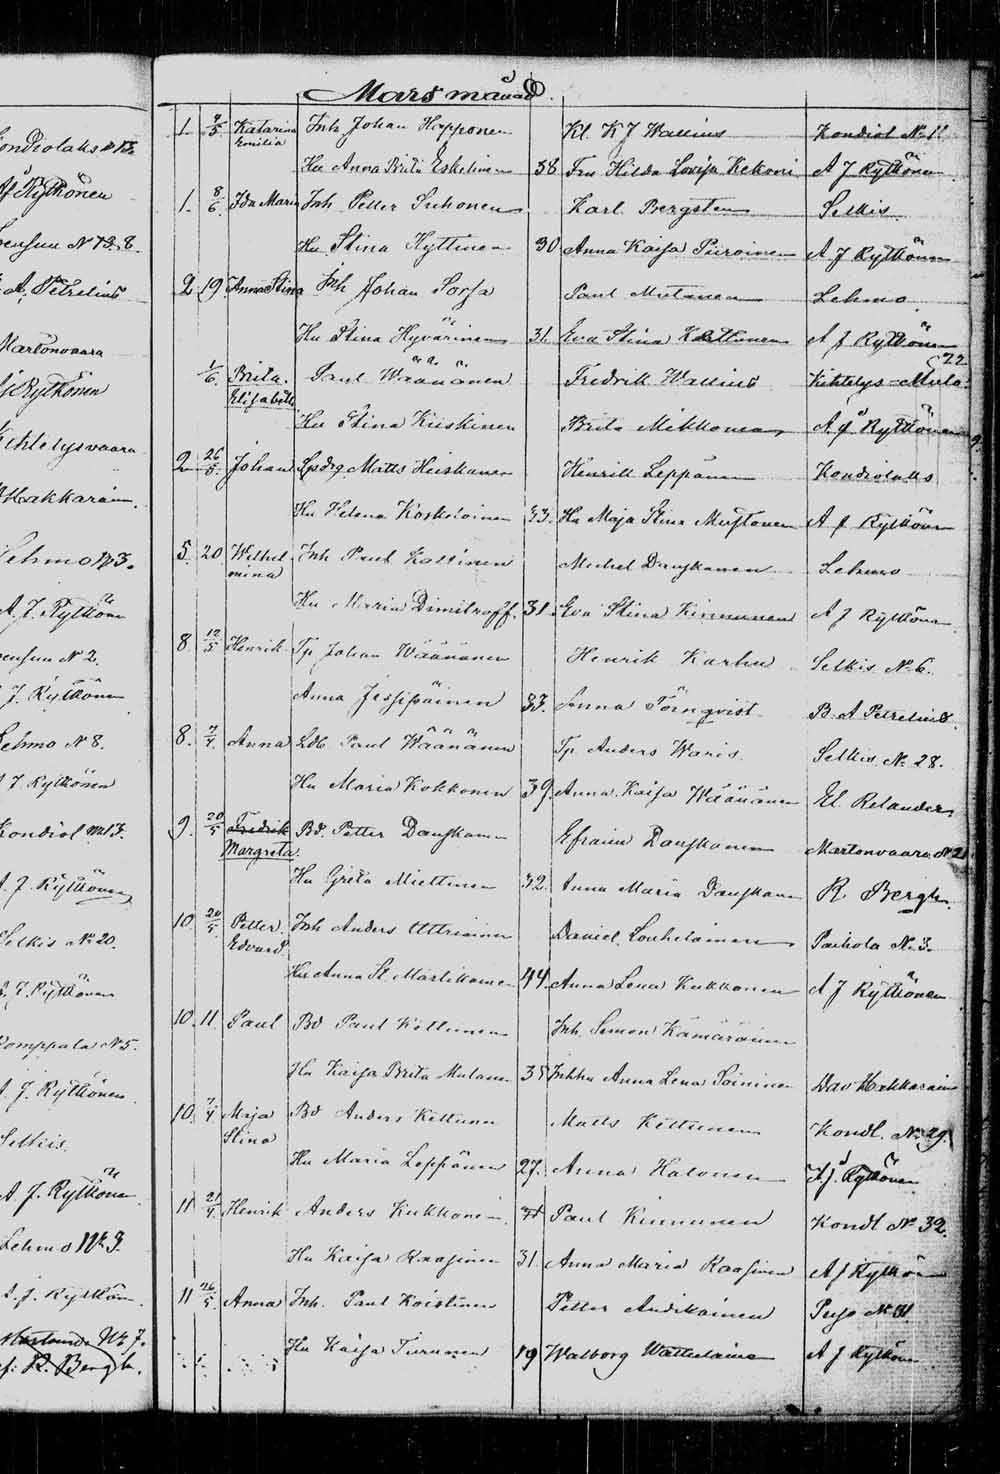 Mars månad.
Kondiolaks
Rytkönen
N 8.
A. Petrelius
Martonvaara
Rytkönen
Kihtelysvaara
Hakkarain
Lehmo N 3.
A. J. Rytkön
N 2.
J. Rytkönen
Lehmo N 8.
J. Rytkönen
Kondiol
J. Rytkönen
Selkis No 20.
J. Rytkönen
Romppala N 5.
J. Rytkönen
Selkis
A. J. Rytkönen
Lehmo No 9.
A. J. Rytkön
No 7.
R. Bergh.
1. 4/5 Katarina Inh. Johan Happonen Kl. K J Wallius Kondiol No 11
Emilia
Hu Anna Brita Eskelinen 38 Fru Hilda Lovisa Kekoni A J Rytkönen
1. 8/6 Ida Maria Inh Petter Suhonen Karl Bergsten Selkis
Hu Stina Hyttinen 30 Anna Kaisa Piiroinen A J Rytkönen
2 19. Anna Stina Inh Johan Sorsa Paul Mutanen Lehmo
Hu Stina Hyvärinen 31. Eva Stina Karttunen A J Rytkönen
22
1/6 Brita Paul Wäänänen Fredrik Wallius Kihtelys-
Elisabeth
Hu Stina Kiiskinen Brita Mikkonen A J Rytkönen
2. 26/5 Johan Matts Heiskanen Henrik Leppänen Kondiolaks
Hu Helena Koskeloinen 33. Hu Maja Stina Mustonen A J Rytkönen
5. 20. Wilhel- Inh Paul Kottinen Michel Danskanen Lehmo
mina
Hu Maria Dimitroff. 31. Eva Stina Kinnunen A J Rytkönen
8. 12/5 Henrik Tp Johan Wäänänen Henrik Karhu Selkis No 6.
Anna Jessipäinen 33. Anna Törnqvist B. A Petrelius
8. 7/4. Anna Ldb Paul Wäänänen Tp Anders Waris Selkis No 28.
Hu Maria Kokkonen 39. Anna Kaisa Wäänänen El. Relander
9. 20/5 Fredrik Bd. Petter Danskanen Efraim Danskanen Martonvaara N 2
Margreta.
Hu Greta Miettinen 32. Anna Maria Danskanen R Bergh.
10. 20/5. Petter Inh Anders Uttriainen Daniel Louhelainen Paihola No 3.
Edvard
Hu Anna St. Martikainen 44. Anna Lena Kukkonen A J Rytkönen
10. 11. Paul Bd Paul Kettunen Inh. Simon Kämäräinen
Hu Kaisa Brita Mutanen 35 Inhhu Anna Lena Soininen Dav Hakkarainen
10. 7/4 Maja Bd Anders Kettunen Matts Kettunen Kondl. No 29.
Stina
Hu Maria Leppänen 27. Anna Halonen A J. Rytkönen
11 21/4. Henrik Anders Kukkonen Paul Kinnunen Kondl No 32.
Hu Kaisa Raasinen 31. Anna Maria Raasinen A J Rytkönen
11 26/5. Anna Inh. Paul Koistinen Petter Andikainen Puso No 31.
Hu Kaisa Turunen 19 Walborg Wattulainen A J Rytkönen